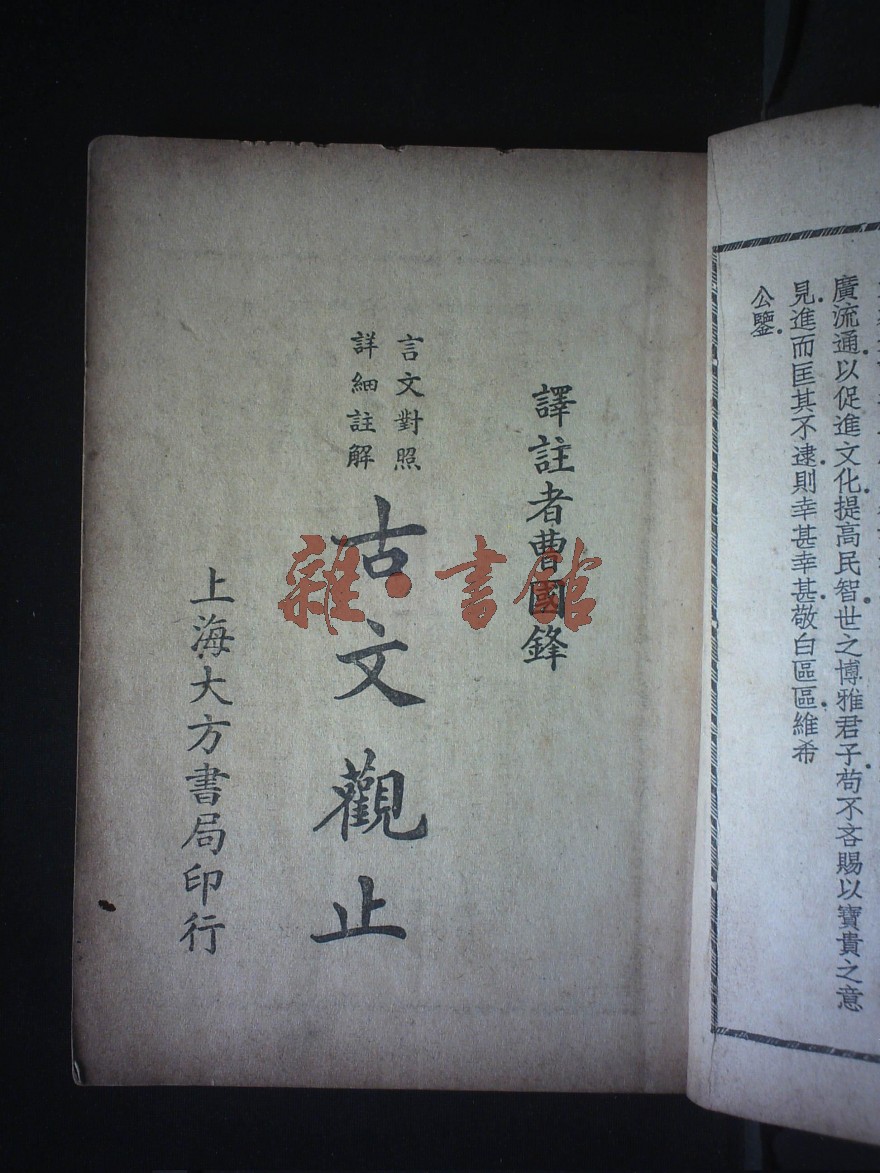 廣流通以促進文化提高民智世之博雅君子苟不吝賜以寶貴之意
見進而匡其不逮則幸甚幸甚敬白區區維希
公鑒
譯註者曹國鋒
言文對照
詳細註解
古文觀止
上海大方書局印行
雜·書館